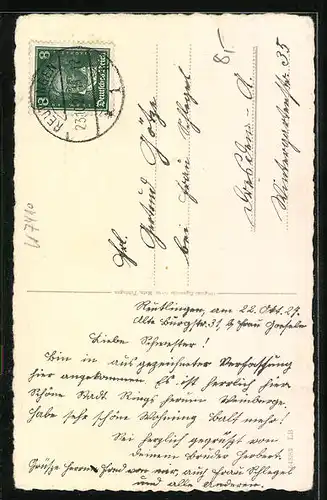 8,-
8
Deutsches Reich
8
REUTLINGEN
Frl.
Gertrud Götze
bei Frau Schlegel
Dresden - A.
Wintergartenstr. 35
U7410
Reutlingen, am 22. Okt. 29.
Alte Burgstr. 31, b/ Frau
Liebe Schwester!
Bin in ausgezeichneter Verfassung
hier angekommen. Es ist herrlich hier
Schöne Stadt. Rings herum Weinberge.
Habe sehr schöne Wohnung Balt mehr!
Sei herzlich gegrüsst von
deinem Bruder Herbert.
Grüsse Herrn von mir, auch Frau Schlegel
und alle Anderen.